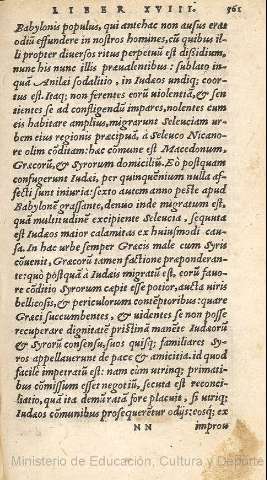 LIBER XVIII. 561
Babylonis populus, qui antehac non ausus erat
odiũ effundere in nostros homines, cũ quibus il-
li propter diuersos ritus perpetuũ est dissidium,
nunc his nunc illis præualentibus: sublato in-
quã Anilæi sodalitio, in Iudæos undiq; coor-
tus est. Itaq; non ferentes eorũ uiolentiã, & sen
tientes se ad confligendũ impares, nolentes cum
eis habitare amplius, migrarunt Seleuciam ur-
bem eius regionis præcipuã, à Seleuco Nicano-
re olim cõditam: hæc cõmune est Macedonum,
Græcorũ, & Syrorum domiciliũ. Eò postquam
confugerunt Iudæi, per quinquẽnium nulla af-
fecti sunt iniuria: sexto autem anno peste apud
Babylonẽ grassante, denuo inde migratum est,
quã multitudinẽ excipiente Seleucia, sequuta
est Iudæos maior calamitas ex huiusmodi cau-
sa. In hac urbe semper Græcis male cum Syris
cõuenit, Græcorũ tamen factione præponderan-
te: quò postquã à Iudæis migratũ est, eorũ fauo-
re cõditio Syrorum capit esse potior, aucta uiris
bellicosis, & periculorum contẽptoribus: quare
Græci succumbentes, & uidentes se non posse
recuperare dignitatẽ pristinã manẽte Iudæorũ
& Syrorũ consensu, suos quisq; familiares Sy-
ros appellauerunt de pace & amicitia. id quod
facile impetratũ est: nam cùm utrinq; primati-
bus cõmissum esset negotiũ, secuta est reconci-
liatio, quã ita demũ rata fore placuit, si utriq;
Iudæos cõmunibus prosequerẽtur odijs: eosq; ex
NN improui
Ministerio de Educación, Cultura y Deporte